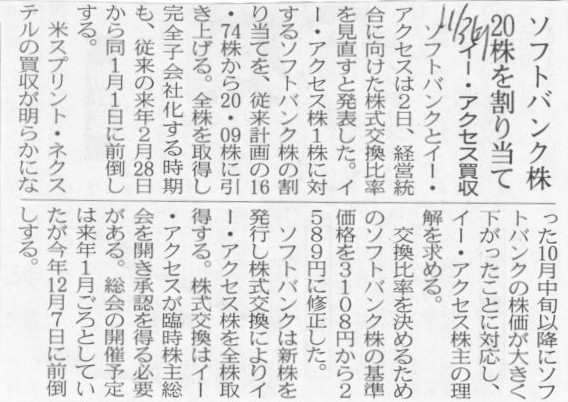 ソフトバンク株
20株を割り当て
イー・アクセス買収
ソフトバンクとイー・
アクセスは2日、経営統
合に向けた株式交換比率
を見直すと発表した。イ
ー・アクセス株1株に対
するソフトバンク株の割
り当てを、従来計画の16
・74株から20・09株に引
き上げる。全株を取得し
完全子会社化する時期
も、従来の来年2月28日
から同1月1日に前倒し
する。
米スプリント・ネクス
テルの買収が明らかにな
った10月中旬以降にソフ
トバンクの株価が大きく
下がったことに対応し、
イー・アクセス株主の理
解を求める。
交換比率を決めるため
のソフトバンク株の基準
価格を3108円から2
589円に修正した。
ソフトバンクは新株を
発行し株式交換によりイ
ー・アクセス株を全株取
得する。株式交換はイー
・アクセスが臨時株主総
会を開き承認を得る必要
がある。総会の開催予定
は来年1月ごろとしてい
たが今年12月7日に前倒
しする。